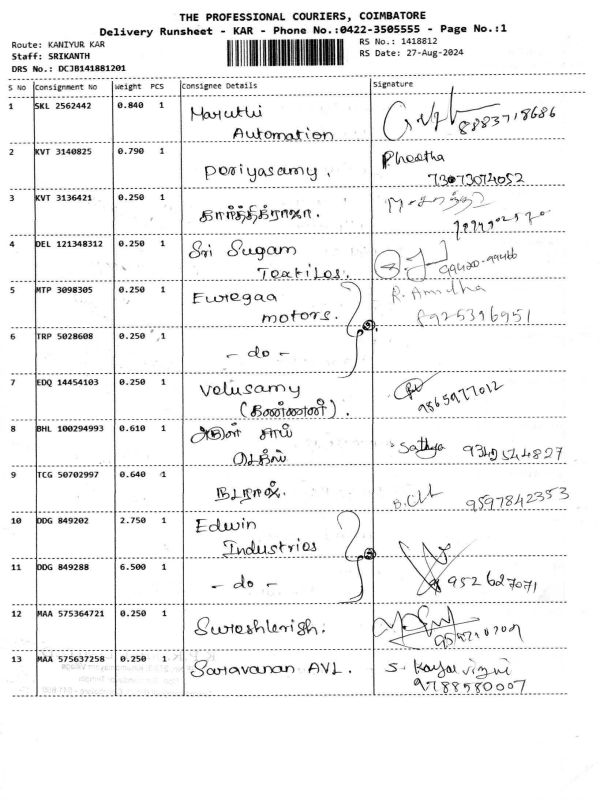 THE PROFESSIONAL COURIERS, COIMBATORE
Delivery Runsheet - KAR - Phone No.:0422-3505555 - Page No.:1
Route: KANIYUR KAR
Staff: SRIKANTH
DRS No.: DCJB141881201
RS No.: 1418812
RS Date: 27-Aug-2024
S No Consignment No Weight PCS Consignee Details Signature
1 SKL 2562442 0.840 1 Maruthi
Automation
8883718686
2 KVT 3140825 0.790 1 Periyasamy.
Pheetha
73073074052
3 KVT 3136421 0.250 1 கார்த்திக்ராஜா.
4 DEL 121348312 0.250 1 Sri Sugam
Textiles.
99420-99466
5 MTP 3098305 0.250 1 Euregaa
motors.
R. Amudha
8925396951
6 TRP 5028608 0.250 1
- do -
②
7 EDQ 14454103 0.250 1 Velusamy
(கண்ணன்).
9865977012
8 BHL 100294993 0.610 1 அருண் சாய்
Sathya 9345544827
9 TCG 50702997 0.640 1 நடராஜ்.
9597842353
10 DDG 849202 2.750 1 Edwin
Industries
②
11 DDG 849288 6.500 1
- do -
952627071
12 MAA 575364721 0.250 1
Sureshkrish.
13 MAA 575637258 0.250 1 Saravanan AVL.
S. Kayalvizhi
9788580007